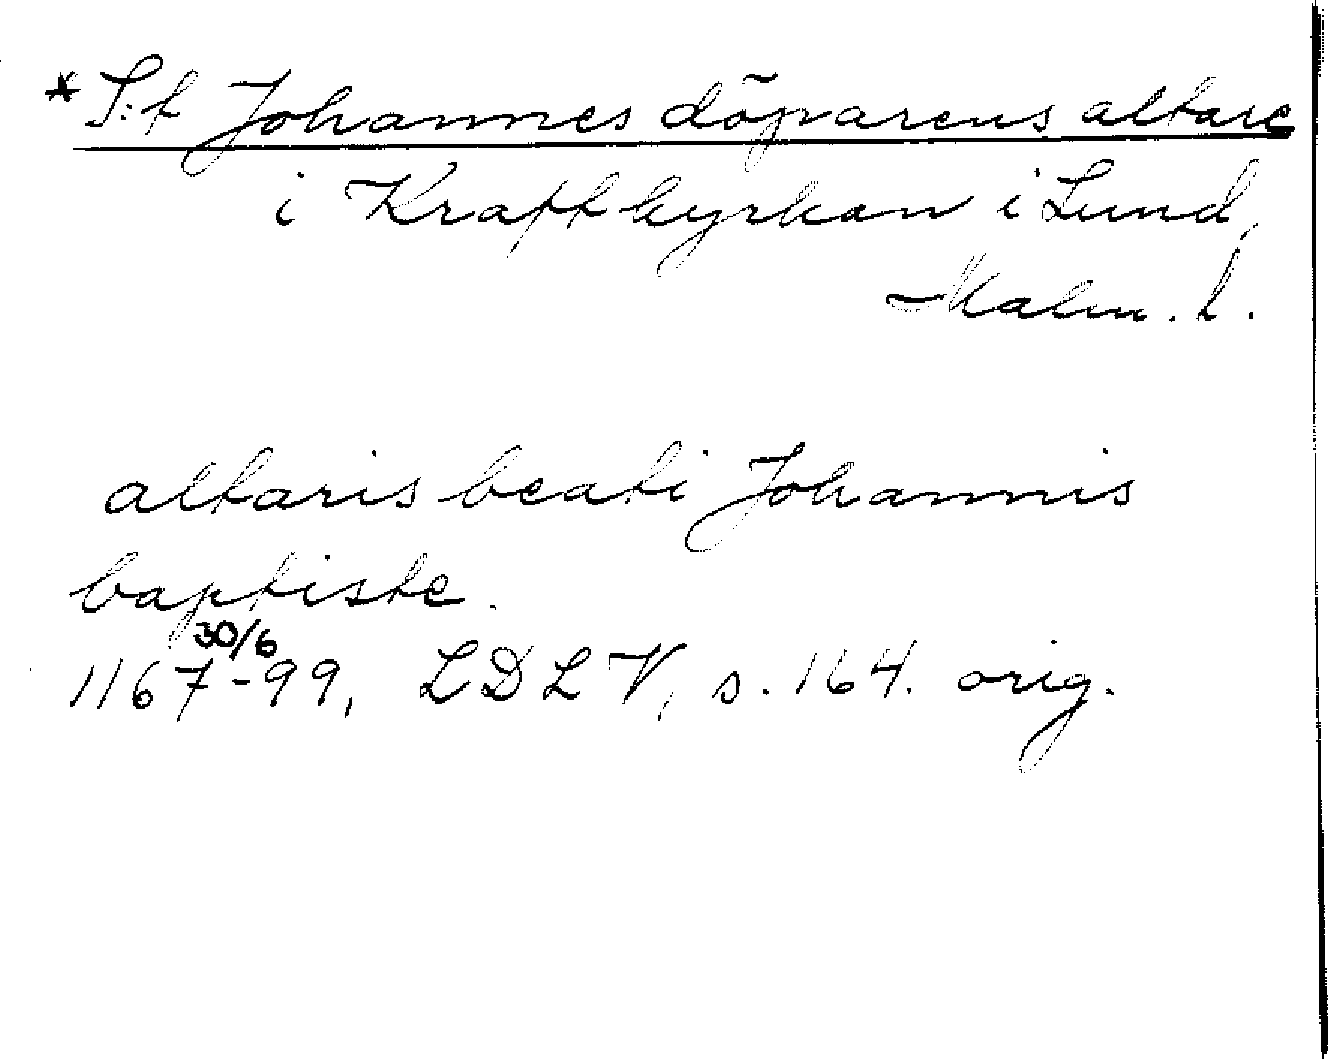 * S:t Johannes döparens altare
i Kraftkyrkan i Lund,
Malm. l.
altaris beati Johannis
baptiste.
30/6
1167-99, LDLV, s. 164. orig.